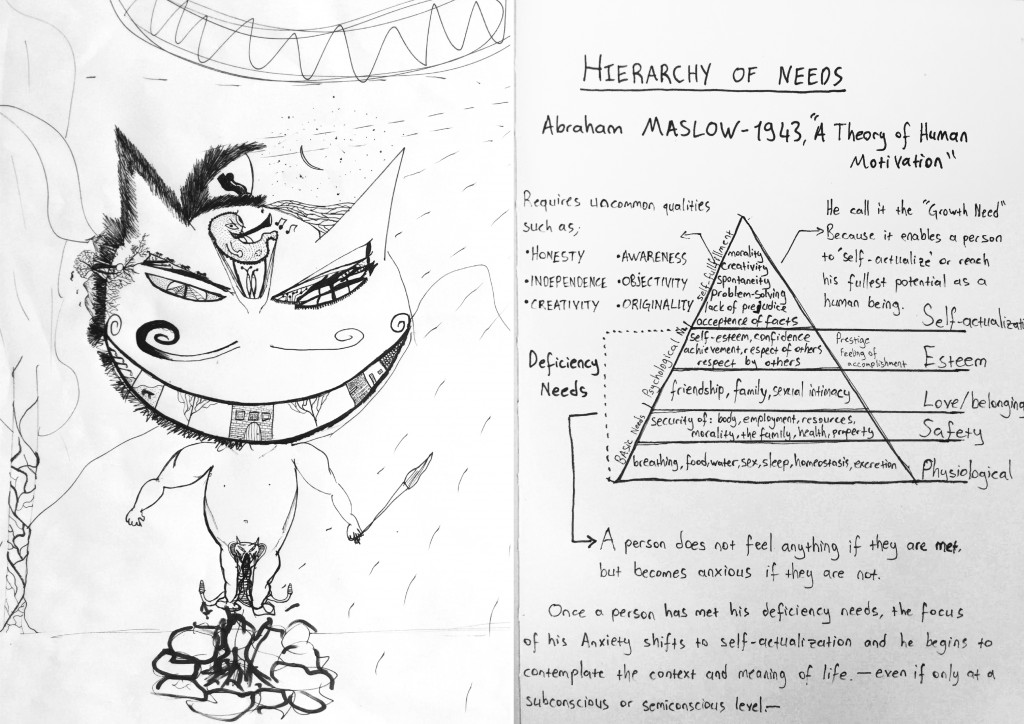 HIERARCHY OF NEEDS
Abraham MASLOW-1943, "A Theory of Human
Motivation"
Requires uncommon qualities
such as;
• HONESTY • AWARENESS
• INDEPENDENCE • OBJECTIVITY
• CREATIVITY • ORIGINALITY
He call it the "Growth Need"
Because it enables a person
to "self-actualize" or reach
his fullest potential as a
human being.
self-fulfillment
morality
creativity
spontaneity
problem-solving
lack of prejudice
acceptence of facts
Self-actualizati
Deficiency
Needs
Psychological
self-esteem, confidence
achievement, respect of others
respect by others
Prestige
Feeling of
accomplishment
Esteem
friendship, family, sexual intimacy
Love/belonging
BASIC Needs
security of: body, employment, resources,
morality, the family, health, property
Safety
breathing, food, water, sex, sleep, homeostasis, excretion
Physiological
A person does not feel anything if they are met,
but becomes anxious if they are not.
Once a person has met his deficiency needs, the focus
of his Anxiety shifts to self-actualization and he begins to
contemplate the context and meaning of life. — even if only at a
subconscious or semiconscious level.—